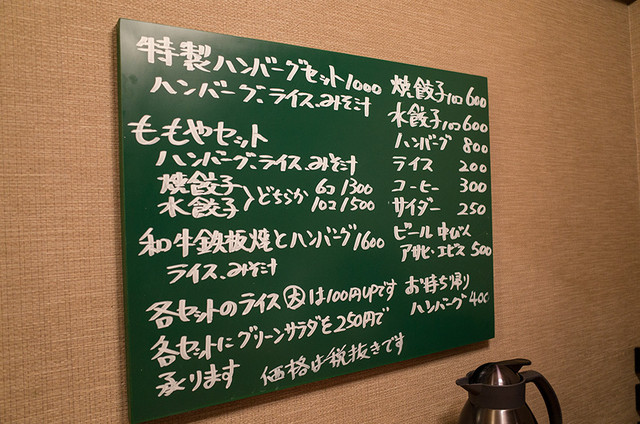 特製ハンバーグセット1000
ハンバーグ、ライス、みそ汁
ももやセット
ハンバーグ、ライス、みそ汁
焼餃子
水餃子 〉どちらか 6コ 1300
10コ 1500
和牛鉄板焼とハンバーグ1600
ライス、みそ汁
各セットのライス大は100円UPです
各セットにグリーンサラダを250円で
承ります 価格は税抜きです
焼餃子10コ 600
水餃子10コ 600
ハンバーグ 800
ライス 200
コーヒー 300
サイダー 250
ビール 中びん
アサヒ・エビス 500
お持ち帰り
ハンバーグ 400